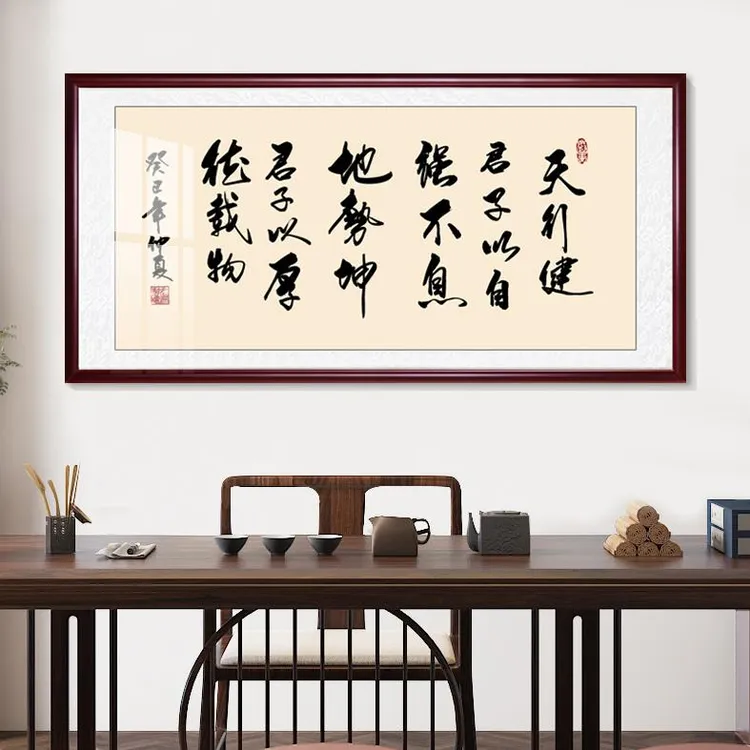 天行健
君子以自
強不息
地勢坤
君子以厚
德載物
癸巳年仲夏